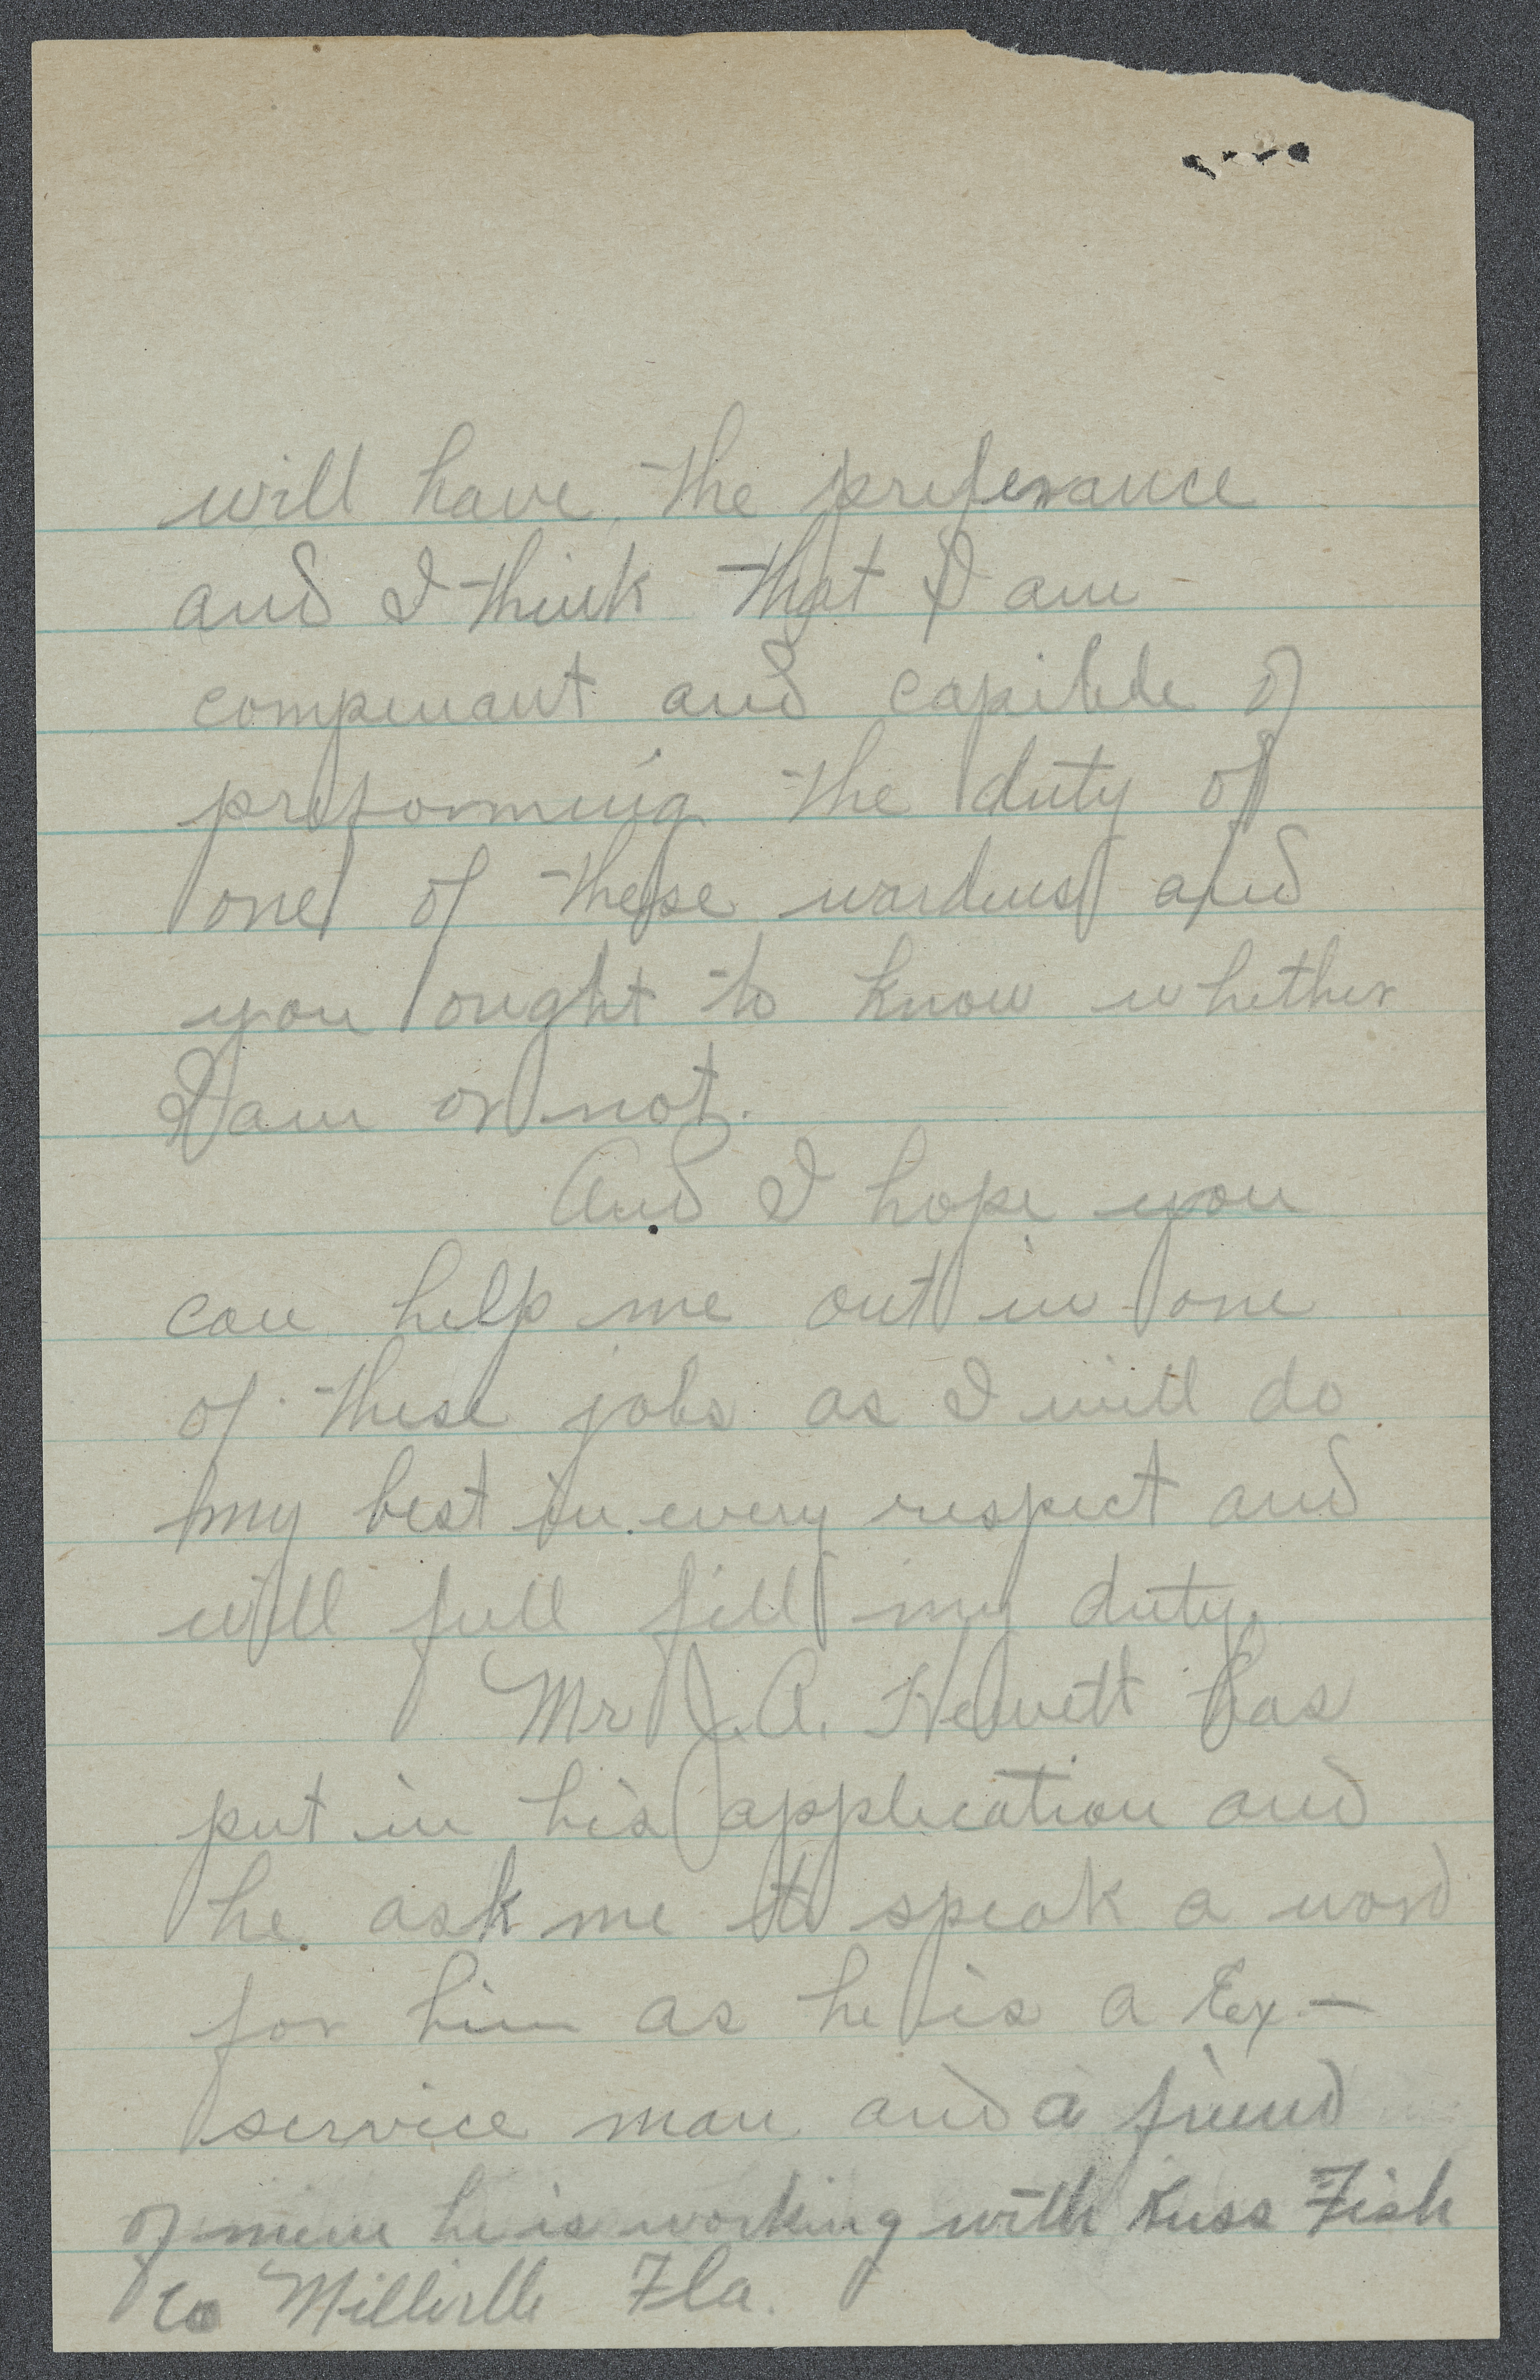 will have the preferance
and I think that I am
compenant and capible of
preforming the duty of
one of these wardens and
you ought to know whether
I am or not.
And I hope you
can help me out in one
of these jobs as I will do
my best in every respect and
will full fill my duty.
Mr J.A. Hewett has
put in his application and
he ask me to speak a word
for him as he is a Ex-
service man and a friend
of mine he is working with Russ Fish
Co Millville Fla.